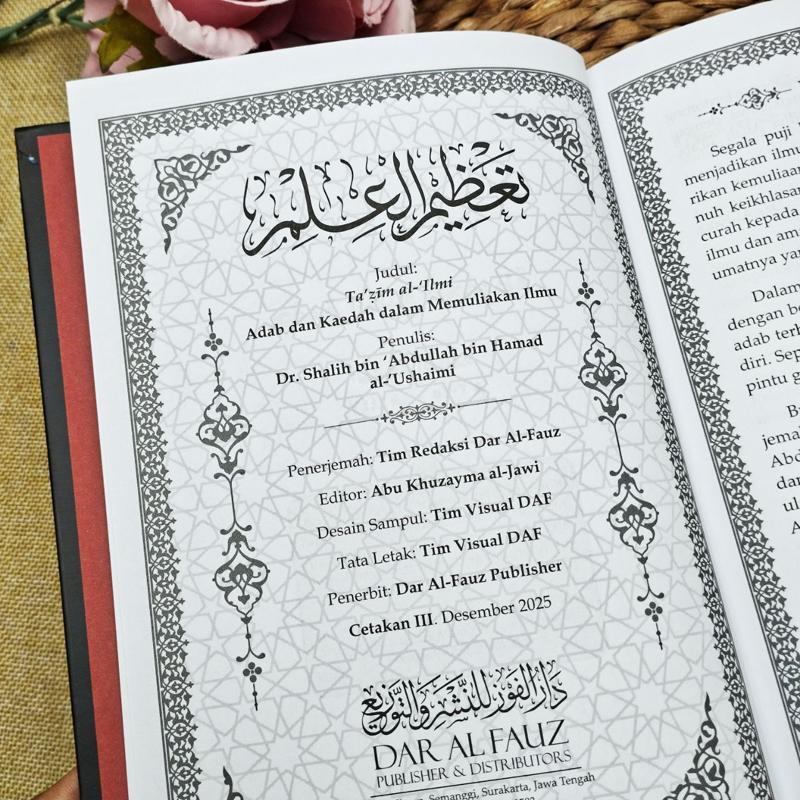 تعظيم العلم
Judul:
Ta’ẓīm al-‘Ilmi
Adab dan Kaedah dalam Memuliakan Ilmu
Penulis:
Dr. Shalih bin ‘Abdullah bin Hamad
al-‘Ushaimi
Penerjemah: Tim Redaksi Dar Al-Fauz
Editor: Abu Khuzayma al-Jawi
Desain Sampul: Tim Visual DAF
Tata Letak: Tim Visual DAF
Penerbit: Dar Al-Fauz Publisher
Cetakan III. Desember 2025
دار الفوز للنشر والتوزيع
DAR AL FAUZ
PUBLISHER & DISTRIBUTORS
Semanggi, Surakarta, Jawa Tengah
Segala puji
menjadikan ilmu
rikan kemuliaan
nuh keikhlasan
curah kepada
ilmu dan
umatnya
Dalam
dengan
adab
diri.
pintu